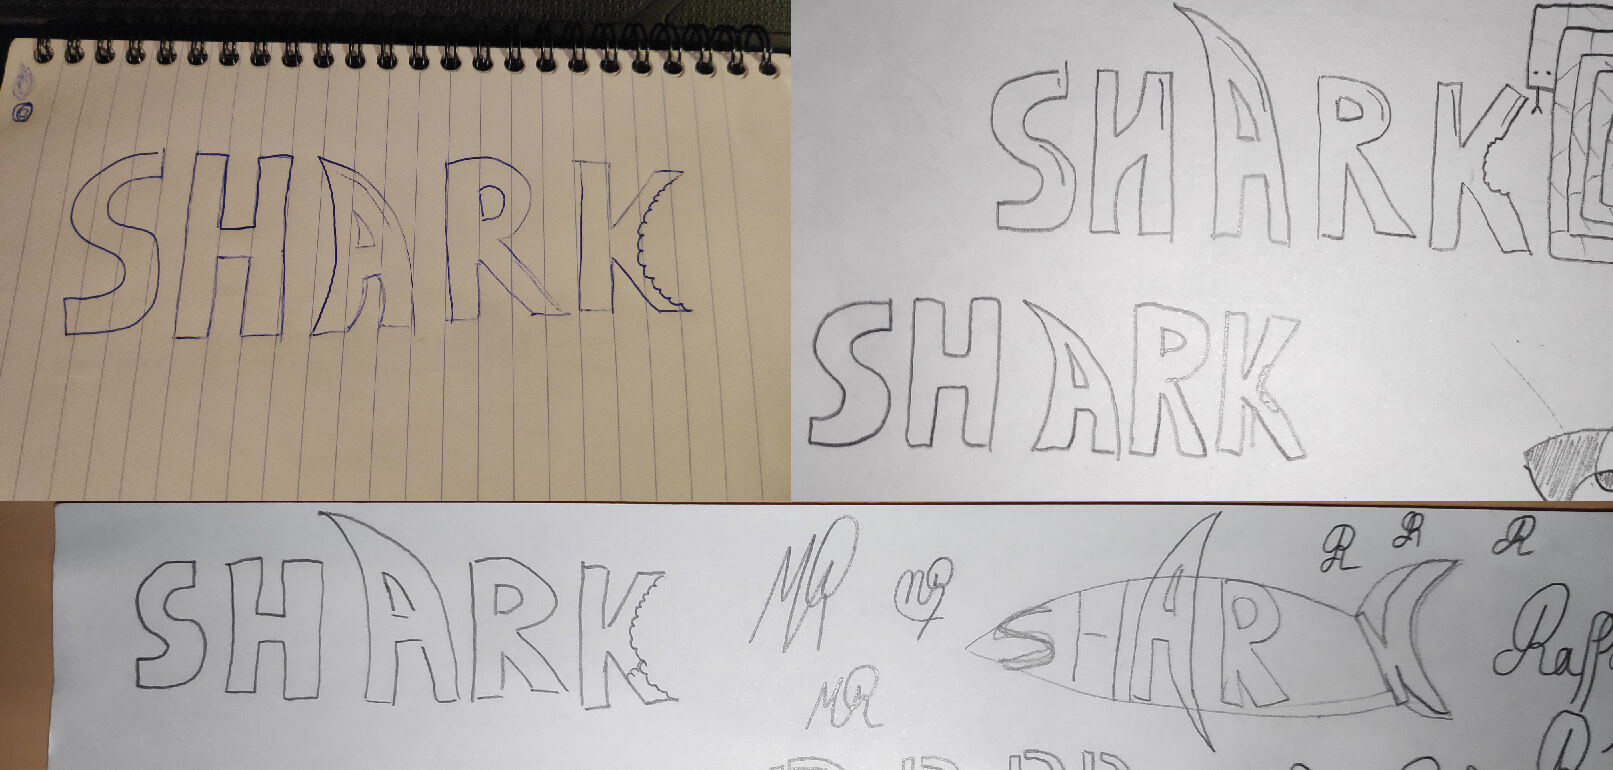 SHARK
SHARK
SHARK
SHARK
MR
MR
MR
SHARK
R R R
Raff